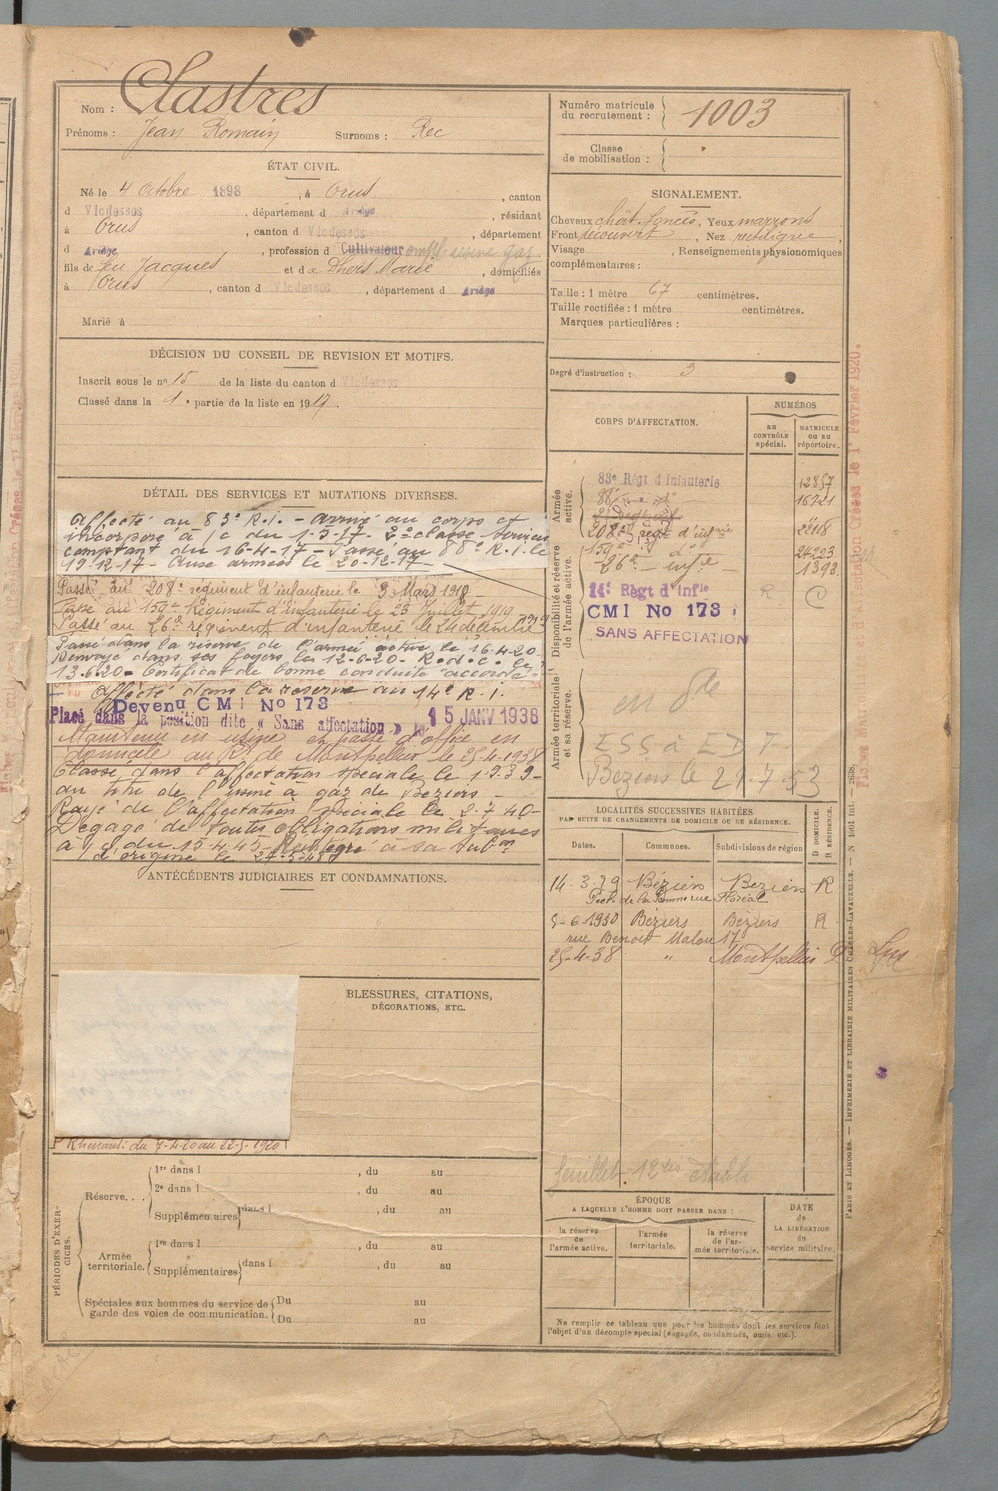 Nom : Clastres
Prénoms : Jean Romain Surnoms : Rec
ÉTAT CIVIL.
Né le 4 Octobre 1898, à Orus, canton
d Vicdessos, département d Ariège, résidant
à Orus, canton d Vicdessos, département
d Ariège, profession d Cultivateur empl. usine gaz
fils de feu Jacques et de Dhers Marie, domiciliés
à Orus, canton d Vicdessos, département d Ariège
Marié à
DÉCISION DU CONSEIL DE REVISION ET MOTIFS.
Inscrit sous le no 15 de la liste du canton d Vicdessos
Classé dans la 1e partie de la liste en 1917.
DÉTAIL DES SERVICES ET MUTATIONS DIVERSES.
Affecté au 83e R.I. – arrivé au corps et
incorporé à /c du 1-5-17. 2e classe services
comptant du 16-4-17 – Passé au 88e R.I. le
19-12-17 – aux armées le 20-12-17 –
Passé au 208e régiment d'infanterie le 3 Mars 1918 –
Passé au 159e Régiment d'Infanterie le 23 Juillet 1919
Passé au 26e régiment d'infanterie le 24 décembre
Passé dans la réserve de l'armée active le 16-4-20.
Renvoyé dans ses foyers le 12-6-20. R.d.c. le
13-6-20 – Certificat de bonne conduite "accordé"
Affecté dans la réserve au 14e R.I.
Devenu CMI No 173
Placé dans la position dite « Sans affectation » le 15 JANV 1938
Maintenu en usine en passé d'office en
domicile au Rt de Montpellier le 25-4-1938
Classé dans l'affectation spéciale le 1-9-39-
au titre de l'usine à gaz de Béziers –
Rayé de l'affectation spéciale le 2-7-40-
Dégagé de toutes obligations militaires
à /c du 15-4-45- Réintégré à sa subon
d'origine le 27-5-48
ANTÉCÉDENTS JUDICIAIRES ET CONDAMNATIONS.
BLESSURES, CITATIONS,
DÉCORATIONS, ETC.
du 7-4-20 au 22-5-1920
PÉRIODES D'EXERCICES.
Réserve...
1re dans l , du au
2e dans l , du au
Supplémentaires dans l , du au
Armée territoriale.
1re dans l , du au
Supplémentaires dans l , du au
Spéciales aux hommes du service de garde des voies de communication.
Du au
Du au
Numéro matricule
du recrutement : 1003
Classe
de mobilisation :
SIGNALEMENT.
Cheveux chât. foncés, Yeux marrons
Front découvert, Nez rectiligne,
Visage , Renseignements physionomiques
complémentaires :
Taille : 1 mètre 67 centimètres.
Taille rectifiée : 1 mètre centimètres.
Marques particulières :
Degré d'instruction : 3
CORPS D'AFFECTATION.
NUMÉROS
AU CONTRÔLE spécial.
MATRICULE OU AU répertoire.
Armée active.
83e Régt d'Infanterie 12857
88e do 16721
208e Regt d'infrie 2218
159e do 24203
26e – infie 1393
Disponibilité et réserve de l'armée active.
14e Régt d'Infie R C
CMI No 173
SANS AFFECTATION
Armée territoriale et sa réserve.
en dle
ESS à EDF
Béziers le 21.7.53
LOCALITÉS SUCCESSIVES HABITÉES
PAR SUITE DE CHANGEMENTS DE DOMICILE OU DE RÉSIDENCE.
Dates. Communes. Subdivisions de région D DOMICILE. R RÉSIDENCE.
14-3-29 Béziers Béziers R
rue Floréal
5-6-1930 Béziers Béziers R
rue Benoit Malon 17
25-4-38 " Montpellier D
feuillet
ÉPOQUE
A LAQUELLE L'HOMME DOIT PASSER DANS :
la réserve de l'armée active.
l'armée territoriale.
la réserve de l'armée territoriale.
DATE
de
LA LIBÉRATION
du
service militaire.
Ne remplir ce tableau que pour les hommes dont les services font
l'objet d'un décompte spécial (engagés, condamnés, omis, etc.).
PARIS ET LIMOGES. — IMPRIMERIE ET LIBRAIRIE MILITAIRES CHARLES-LAVAUZELLE. — N 1001 int. — 2638.
Fiches Matricule et d'Affectation Créées le 1er Février 1920.